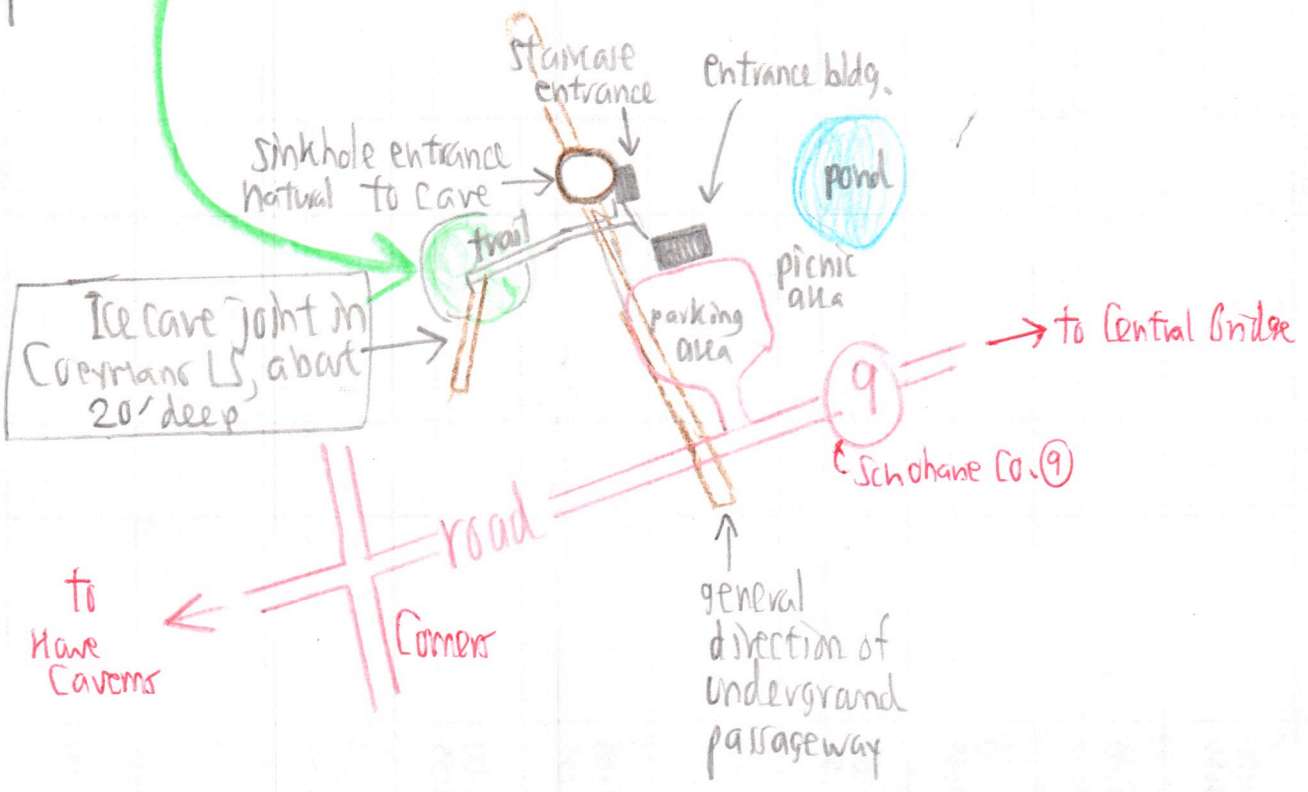 staircase
entrance
entrance bldg.
sinkhole entrance
natural to cave
pond
trail
picnic
area
Ice Cave joint in
Coeymans LS, about
20' deep
parking
area
to Central Bridge
9
Schoharie Co. 9
road
to
Howe
Caverns
Corners
general
direction of
underground
passageway